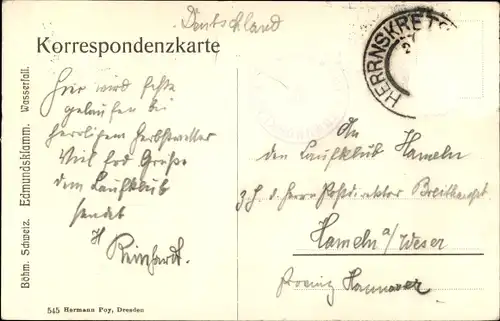 Deutschland
Korrespondenzkarte
HERRNSKRETS
Hier wird feste
gelaufen bei
herrlichem Herbstwetter
Viel Grüße
dem Laufklub
sendet
H Reinhardt.
An
den Laufklub Hameln
z. H. d. Herrn Postdirektor Breithaupt
Hameln a/Weser
Provinz Hannover
Böhm. Schweiz. Edmundsklamm. Wasserfall.
545 Hermann Poy, Dresden